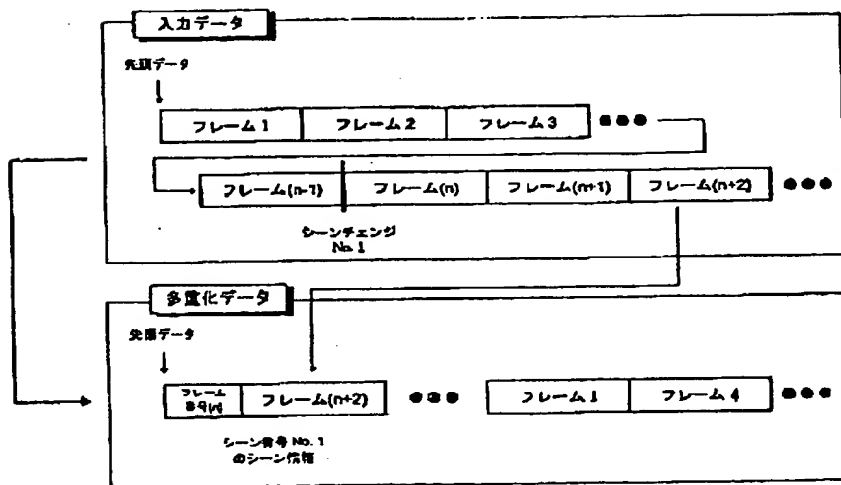 入力データ
先頭データ
フレーム1
フレーム2
フレーム3
フレーム(n-1)
フレーム(n)
フレーム(n+1)
フレーム(n+2)
シーンチェンジ
No.1
多重化データ
先頭データ
フレーム
番号(n)
フレーム(n+2)
フレーム1
フレーム4
シーン番号 No.1
のシーン情報